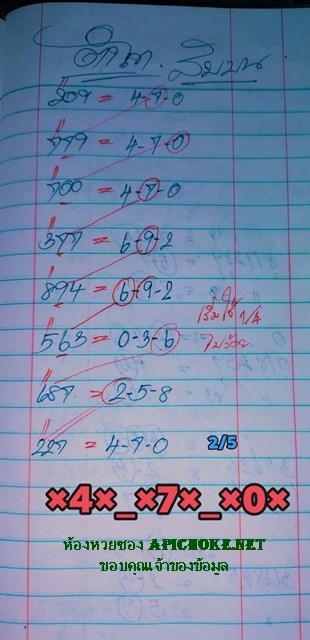 สิบบน
209 = 4-7-0
779 = 4-7-0
700 = 4-7-0
377 = 6-9-2
894 = 6-9-2
563 = 0-3-6
เริ่มใช้ 1/4
ในร้อย
187 = 2-5-8
227 = 4-7-0 2/5
×4×_×7×_×0×
ห้องหวยซอง APICHOKE.NET
ขอบคุณเจ้าของข้อมูล